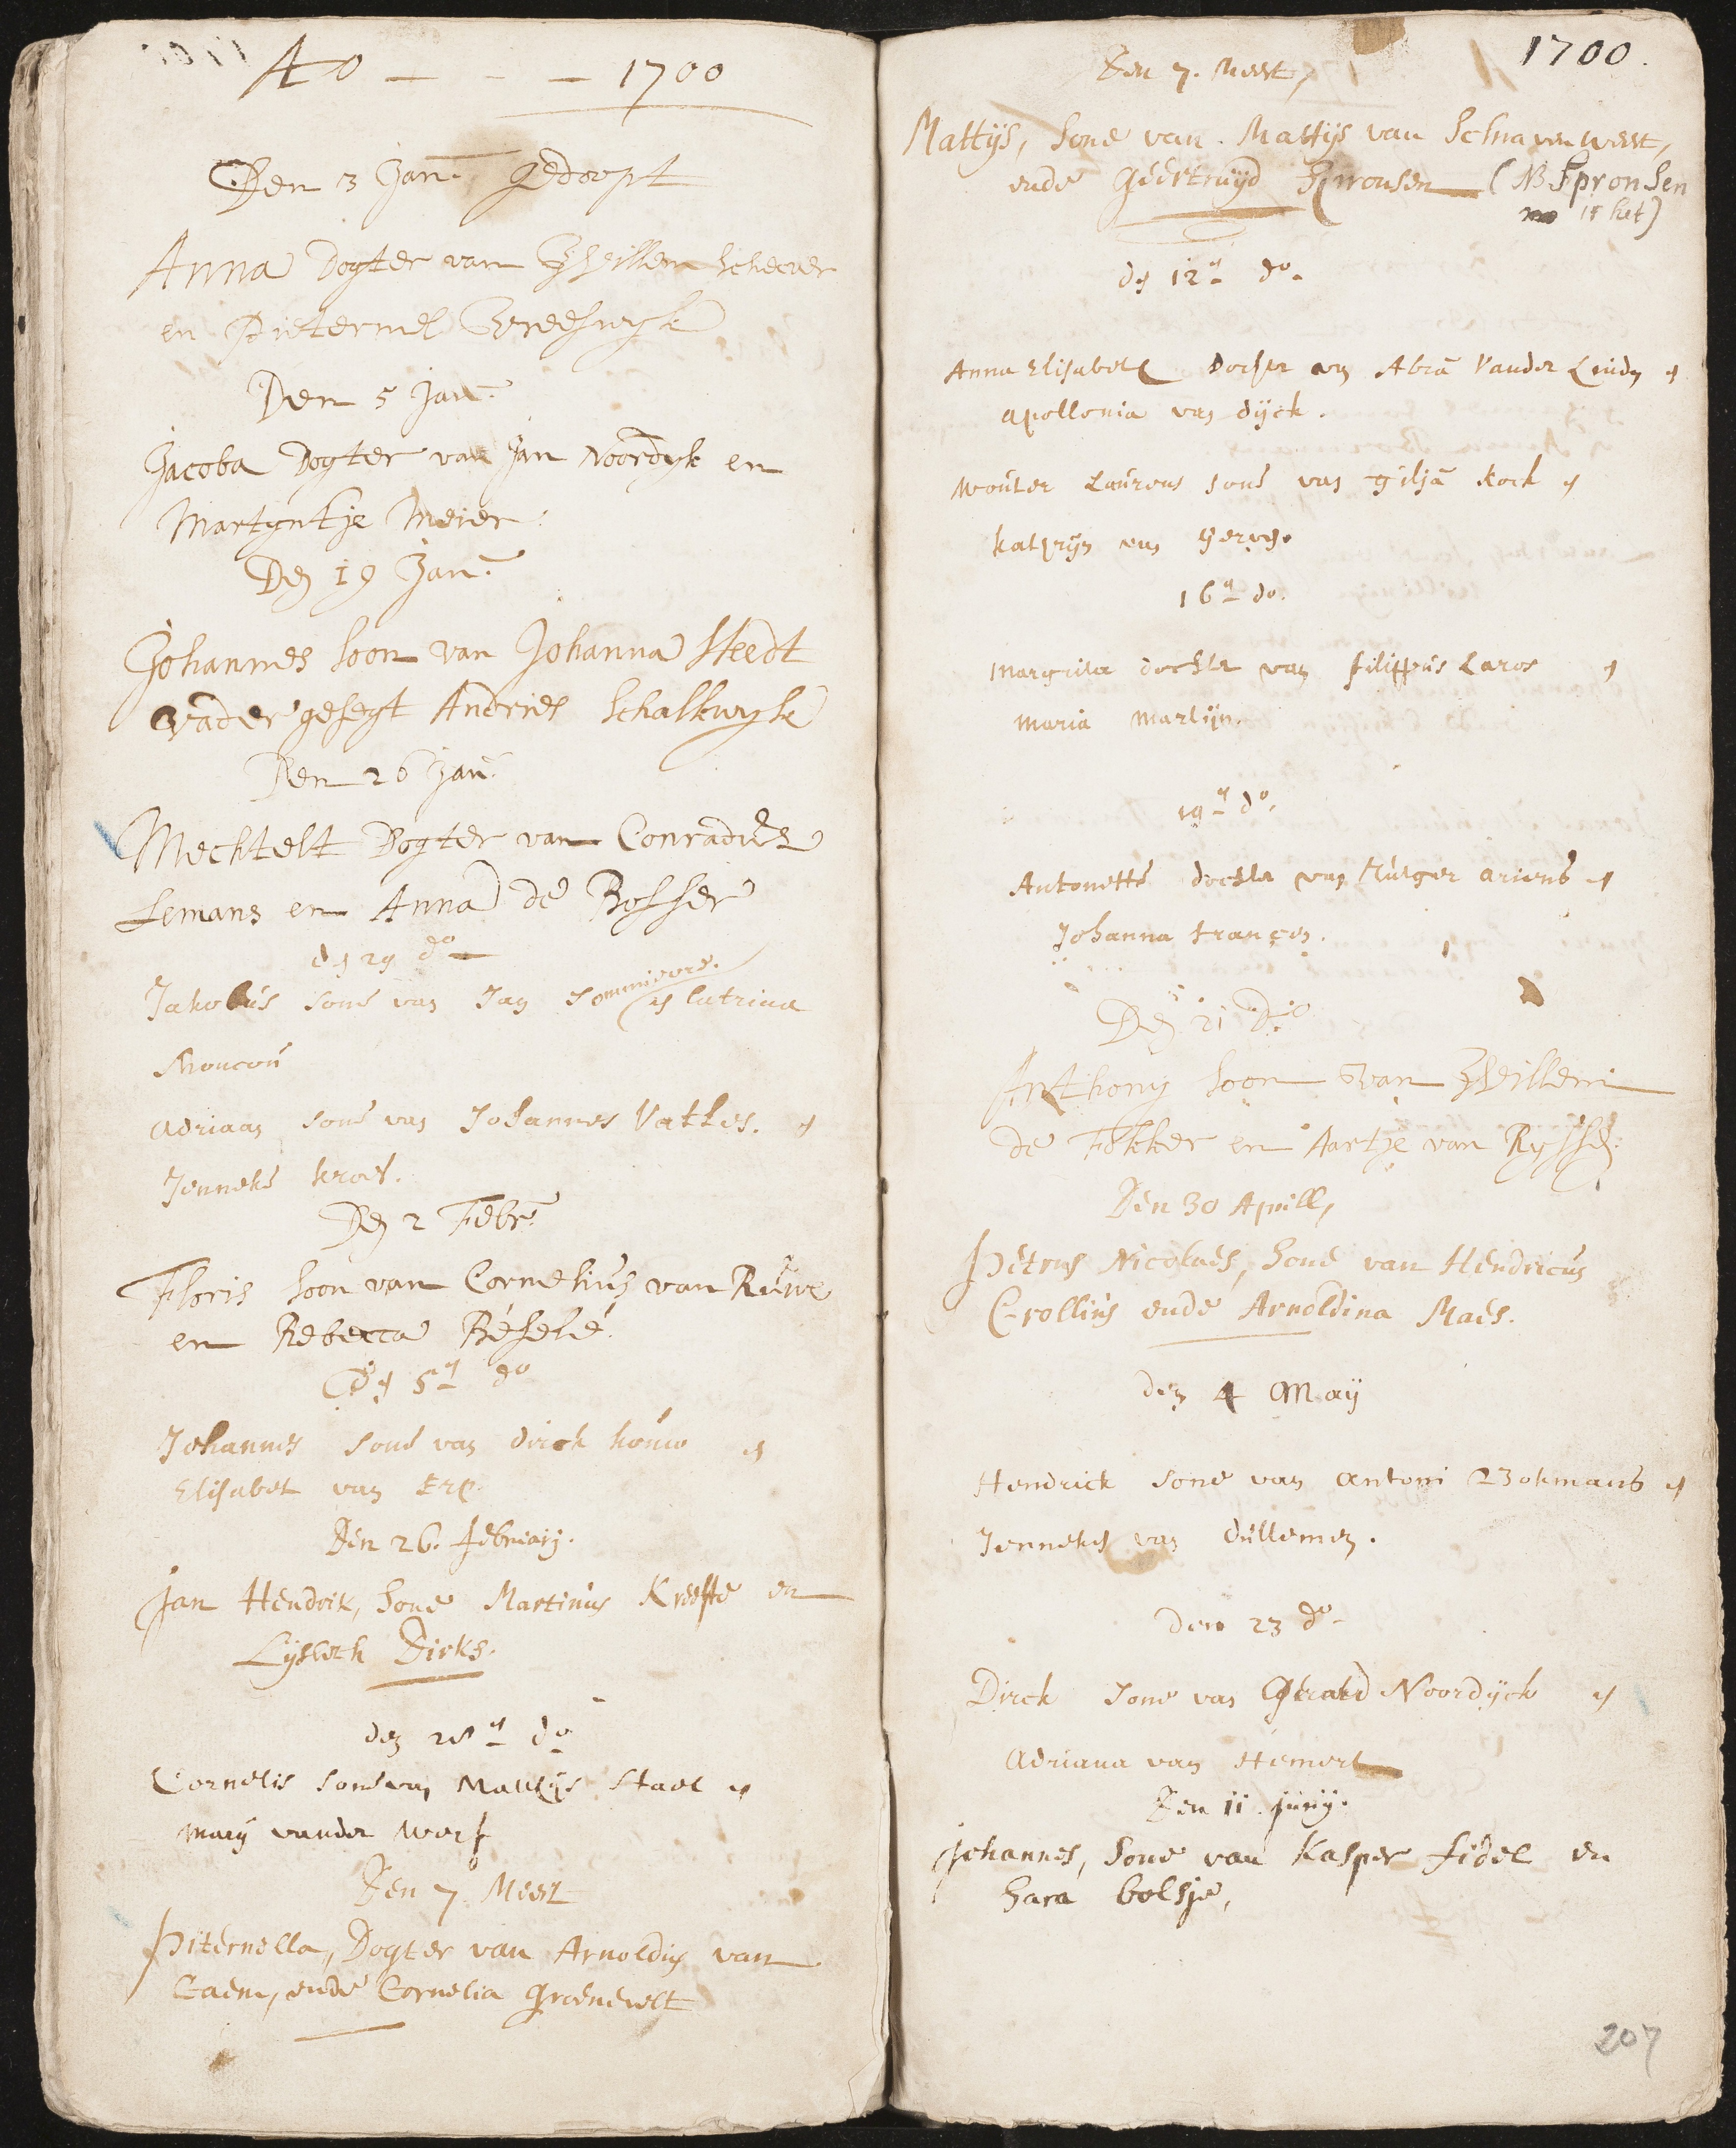 Ao — - — 1700
Den 3 Jan. gedoopt
Anna Dogter van Willem Schecver
en Pieternel Vreeswyk
Den 5 Jan.
Jacoba Dogter van Jan Noordyk en
Martyntje Meier.
Den 19 Jan.
Johannes Soon van Johanna Steedt
vader gesegt Andries Schalkwyk
Den 26 Jan.
Mechtelt Dogter van Conradus
Lemans en Anna de Rosser
den 29 do
Jakobus sone van Jan Sommievre. en Catrina
Moucou
Adriaan sone van Johannes Vatles. en
Jenneke kroes.
Den 2 Febr.
Floris Soon van Cornelius van Ruwe
en Rebecca Béselé.
Den 5en do
Johannes sone van dirck houw en
Elisabet van Erp.
Den 26. februarij.
Jan Hendrik, Sone Martinus Kreefte en
Lijsbeth Dirks.
den 28en do
Cornelis sone van Mattijs Stael en
marij vander Werf
Den 7. Meert
Piternella, Dogter van Arnoldus van
Caem, ende Cornelia groenevelt
1700.
Den 7. Meert,
Mattijs, Sone van Mattijs van Schuavenweert,
ende geertruijd Spronsen (NB Spronsen
is het)
den 12en do.
Anna Elisabeth Dochter van Abra Vander Linden en
apollonia van dijck.
Wouter Laurens sone van giljā kock en
katrijn van gerven.
16en do.
Margrita dochter van filippus Laros en
Maria Martijn.
19en do.
Antonette dochter van Rutger ariens en
Johanna françen.
Den 21 do
Anthony Soon van Willem
de Fokker en Aartje van Ryssen.
Den 30 Aprill,
Petrus Nicolaes, Sone van Hendricus
Crollius ende Arnoldina Maes.
den 4 Maij
Hendrick sone van antoni Bokmans en
Jenneke van dullemen.
Den 23 do.
Dirck sone van Gerard Noordijck en
Adriana van Hemert
Den 11. junij.
Johannes, Sone van Kasper fidel en
Sara bolsje,
207